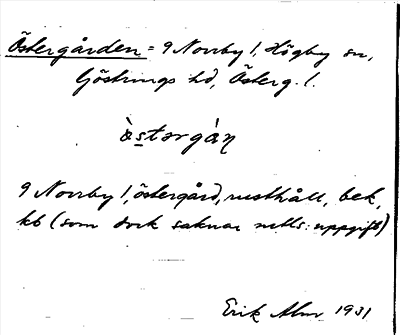 Östergården = 9 Norrby 1, Högby sn,
Göstrings hd, Österg. l.
ὰstərgàṇ
9 Norrby 1, östergård, rusthåll, bek,
kb (som dock saknar mtls:uppgift)
Erik Alm 1931